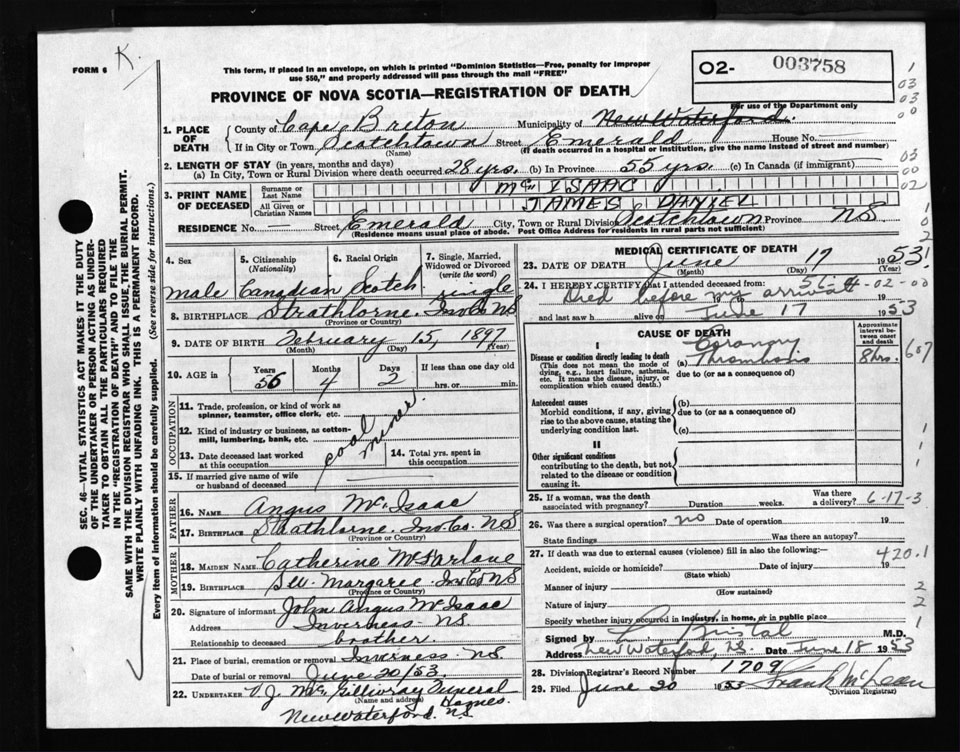 FORM 6
K.
This form, if placed in an envelope, on which is printed "Dominion Statistics—Free, penalty for improper
use $50," and properly addressed will pass through the mail "FREE"
PROVINCE OF NOVA SCOTIA—REGISTRATION OF DEATH
02- 003758
For use of the Department only
1. PLACE OF DEATH
County of Cape Breton Municipality of New Waterford.
If in City or Town Scotchtown Street Emerald House No.
(Name) (If death occurred in a hospital or institution, give the name instead of street and number)
2. LENGTH OF STAY (in years, months and days)
(a) In City, Town or Rural Division where death occurred 28 yrs. (b) In Province 55 yrs. (c) In Canada (if immigrant)
3. PRINT NAME OF DECEASED
Surname or Last Name Mc ISAAC
All Given or Christian Names JAMES DANIEL
RESIDENCE No. — Street Emerald City, Town or Rural Division Scotchtown Province NS
(Residence means usual place of abode. Post Office Address for residents in rural parts not sufficient)
4. Sex
male
5. Citizenship (Nationality)
Canadian
6. Racial Origin
Scotch
7. Single, Married, Widowed or Divorced (write the word)
single
8. BIRTHPLACE Strathlorne Inv. Co NS
(Province or Country)
9. DATE OF BIRTH February 15, 1897
(Month) (Day) (Year)
10. AGE Years 56 Months 4 Days 2 If less than one day old
hrs. or min.
OCCUPATION
11. Trade, profession, or kind of work as spinner, teamster, office clerk, etc.
12. Kind of industry or business, as cotton-mill, lumbering, bank, etc.
coal miner.
13. Date deceased last worked at this occupation
14. Total yrs. spent in this occupation
15. If married give name of wife or husband of deceased
FATHER
16. NAME Angus Mc Isaac
17. BIRTHPLACE Strathlorne Inv. Co. NS
(Province or Country)
MOTHER
18. MAIDEN NAME Catherine McFarlane
19. BIRTHPLACE S.W. Margaree Inv Co NS
(Province or Country)
20. Signature of informant John Angus McIsaac
Address Inverness NS.
Relationship to deceased brother.
21. Place of burial, cremation or removal Inverness NS
Date of burial or removal June 20/53.
22. UNDERTAKER V.J. McGillivray Funeral Homes.
(Name and address)
New Waterford. NS
MEDICAL CERTIFICATE OF DEATH
23. DATE OF DEATH June 17 1953
(Month) (Day) (Year)
24. I HEREBY CERTIFY that I attended deceased from
Died before my arrival
562 4-02-00
and last saw h alive on June 17 1953
CAUSE OF DEATH
Approximate interval between onset and death
I
Disease or condition directly leading to death
(This does not mean the mode of dying, e.g., heart failure, asthenia, etc. It means the disease, injury, or complication which caused death.)
(a) Coronary Thrombosis 8 hrs.
due to (or as a consequence of)
607
Antecedent causes
Morbid conditions, if any, giving rise to the above cause, stating the underlying condition last.
(b)
due to (or as a consequence of)
(c)
II
Other significant conditions
contributing to the death, but not related to the disease or condition causing it.
25. If a woman, was the death associated with pregnancy? Duration weeks. Was there a delivery?
6-17-3
26. Was there a surgical operation? no Date of operation 19
State findings Was there an autopsy?
27. If death was due to external causes (violence) fill in also the following:
420.1
Accident, suicide or homicide? Date of injury 19
(State which)
Manner of injury
(How sustained)
Nature of injury
Specify whether injury occurred in industry, in home, or in public place
Signed by Bristol M.D.
Address New Waterford, N.S. Date June 18 1953
28. Division Registrar's Record Number 1709
29. Filed June 20 1953 Frank McLean
(Division Registrar)
1
03
03
00
03
00
02
1
0
2
1
1
1
1
2
2
1
SEC. 46—VITAL STATISTICS ACT MAKES IT THE DUTY
OF THE UNDERTAKER OR PERSON ACTING AS UNDER-
TAKER TO OBTAIN ALL THE PARTICULARS REQUIRED
IN THE "REGISTRATION OF DEATH" AND TO FILE THE
SAME WITH THE DIVISION REGISTRAR WHO SHALL ISSUE THE BURIAL PERMIT.
WRITE PLAINLY WITH UNFADING INK. THIS IS A PERMANENT RECORD.
Every item of information should be carefully supplied. (See reverse side for instructions.)